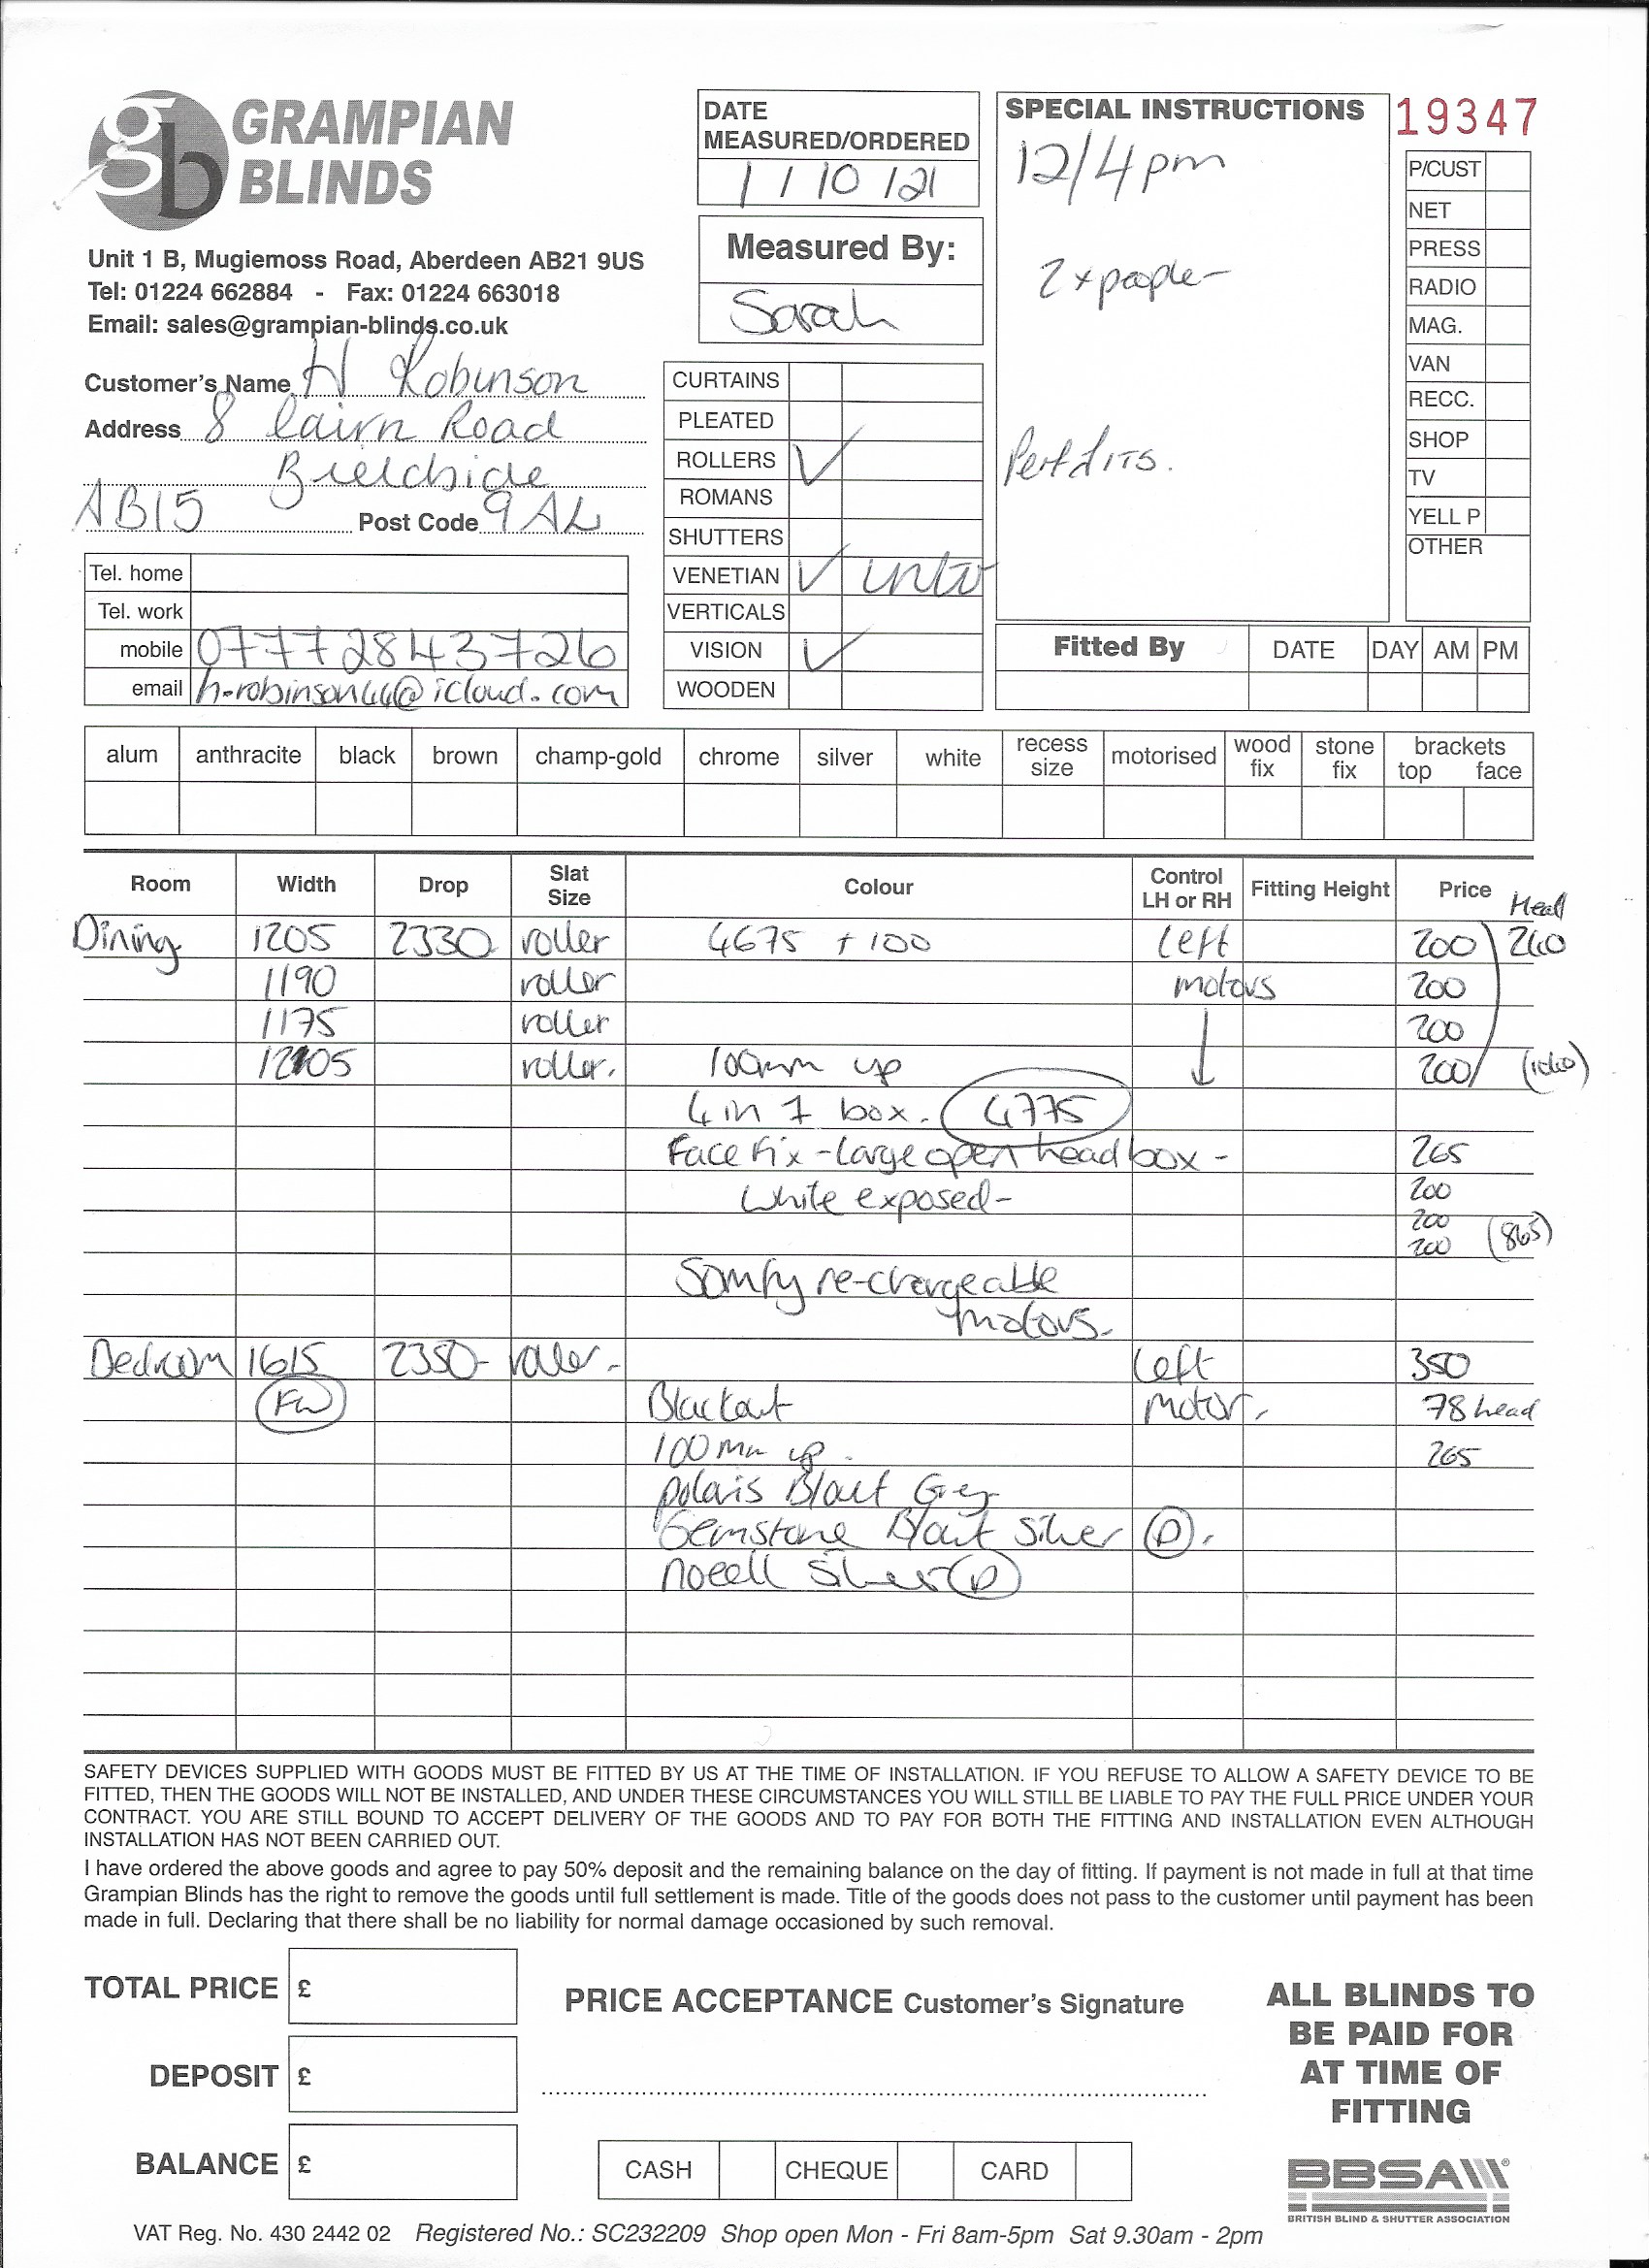 gb GRAMPIAN
BLINDS
Unit 1 B, Mugiemoss Road, Aberdeen AB21 9US
Tel: 01224 662884 - Fax: 01224 663018
Email: sales@grampian-blinds.co.uk
DATE
MEASURED/ORDERED
1 / 10 / 21
Measured By:
Sarah
SPECIAL INSTRUCTIONS
12/4pm
2 x people-
19347
P/CUST
NET
PRESS
RADIO
MAG.
VAN
RECC.
SHOP
TV
YELL P
OTHER
Customer's Name H Robinson
Address 8 Cairn Road
Bieldside
AB15 Post Code 9AL
Tel. home
Tel. work
mobile 07772843726
email h.robinson44@icloud.com
CURTAINS
PLEATED
ROLLERS ✓
ROMANS
SHUTTERS
VENETIAN ✓
VERTICALS
VISION ✓
WOODEN
Perf fits.
Fitted By DATE DAY AM PM
alum anthracite black brown champ-gold chrome silver white recess size motorised wood fix stone fix brackets top face
Room Width Drop Slat Size Colour Control LH or RH Fitting Height Price Head
Dining 1205 2330 roller 4675 + 100 Left 200 260
1190 roller motors 200
1175 roller 200
1205 roller. 100mm up 200
4 in 1 box. 4775
Face fix - large open head box - 265
White exposed - 200
200
200 (865)
Somfy re-chargeable
motors.
Bedroom 1615 2350- roller. Left 350
FW Blackout Motor. 78 head
100mm up. 265
polaris B/out Grey
Gemstone B/out Silver (D).
Silver (D)
SAFETY DEVICES SUPPLIED WITH GOODS MUST BE FITTED BY US AT THE TIME OF INSTALLATION. IF YOU REFUSE TO ALLOW A SAFETY DEVICE TO BE
FITTED, THEN THE GOODS WILL NOT BE INSTALLED, AND UNDER THESE CIRCUMSTANCES YOU WILL STILL BE LIABLE TO PAY THE FULL PRICE UNDER YOUR
CONTRACT. YOU ARE STILL BOUND TO ACCEPT DELIVERY OF THE GOODS AND TO PAY FOR BOTH THE FITTING AND INSTALLATION EVEN ALTHOUGH
INSTALLATION HAS NOT BEEN CARRIED OUT.
I have ordered the above goods and agree to pay 50% deposit and the remaining balance on the day of fitting. If payment is not made in full at that time
Grampian Blinds has the right to remove the goods until full settlement is made. Title of the goods does not pass to the customer until payment has been
made in full. Declaring that there shall be no liability for normal damage occasioned by such removal.
TOTAL PRICE £
DEPOSIT £
BALANCE £
PRICE ACCEPTANCE Customer's Signature
CASH CHEQUE CARD
ALL BLINDS TO
BE PAID FOR
AT TIME OF
FITTING
BBSA
BRITISH BLIND & SHUTTER ASSOCIATION
VAT Reg. No. 430 2442 02 Registered No.: SC232209 Shop open Mon - Fri 8am-5pm Sat 9.30am - 2pm